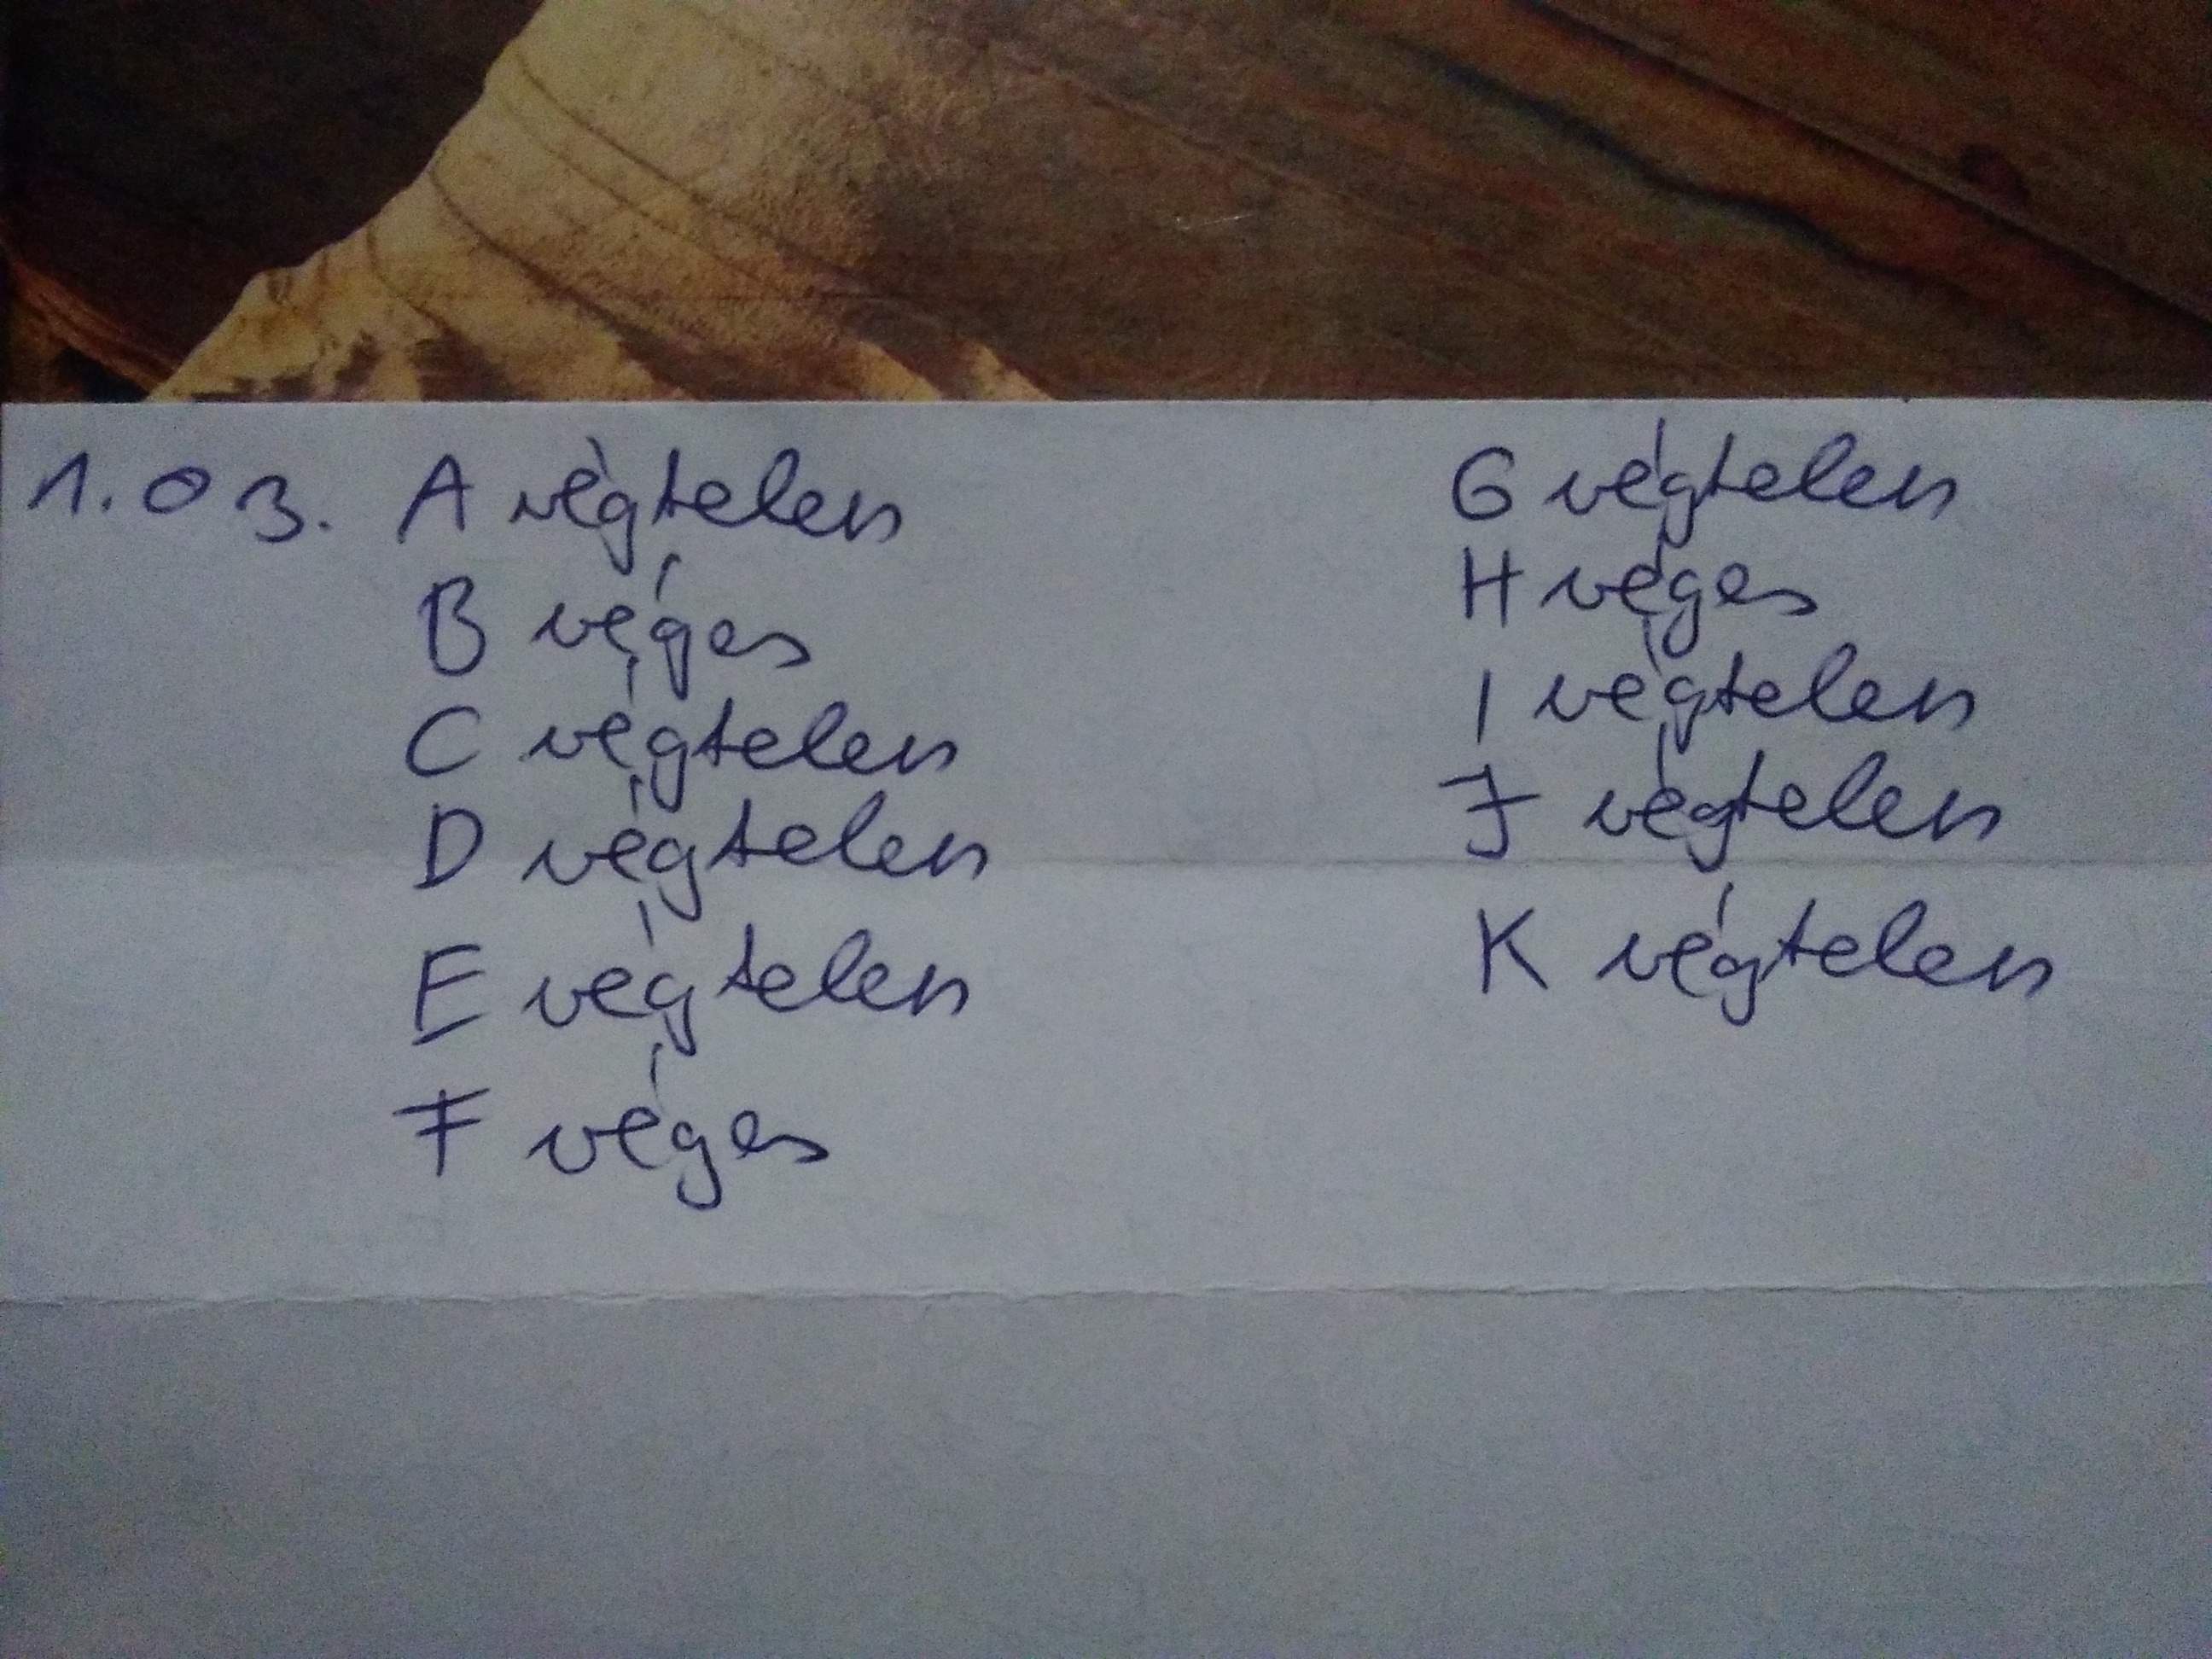 1.03. A végtelen
B véges
C végtelen
D végtelen
E végtelen
F véges
G végtelen
H véges
I végtelen
J végtelen
K végtelen